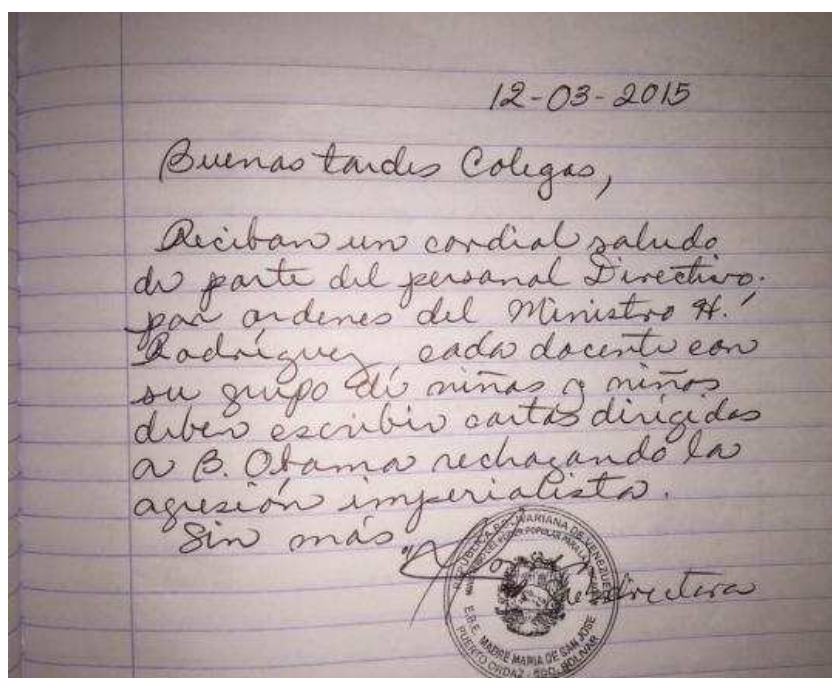 12-03-2015
Buenas tardes Colegas,
Reciban un cordial saludo
de parte del personal Directivo.
por ordenes del Ministro H.
Rodríguez, cada docente con
su grupo de niñas y niños
deben escribir cartas dirigidas
a B. Obama rechazando la
agresión imperialista.
Sin más
REPÚBLICA BOLIVARIANA DE VENEZUELA
MINISTERIO DEL PODER POPULAR PARA LA
E.B.E. MADRE MARIA DE SAN JOSE
PUERTO ORDAZ - EDO. BOLIVAR